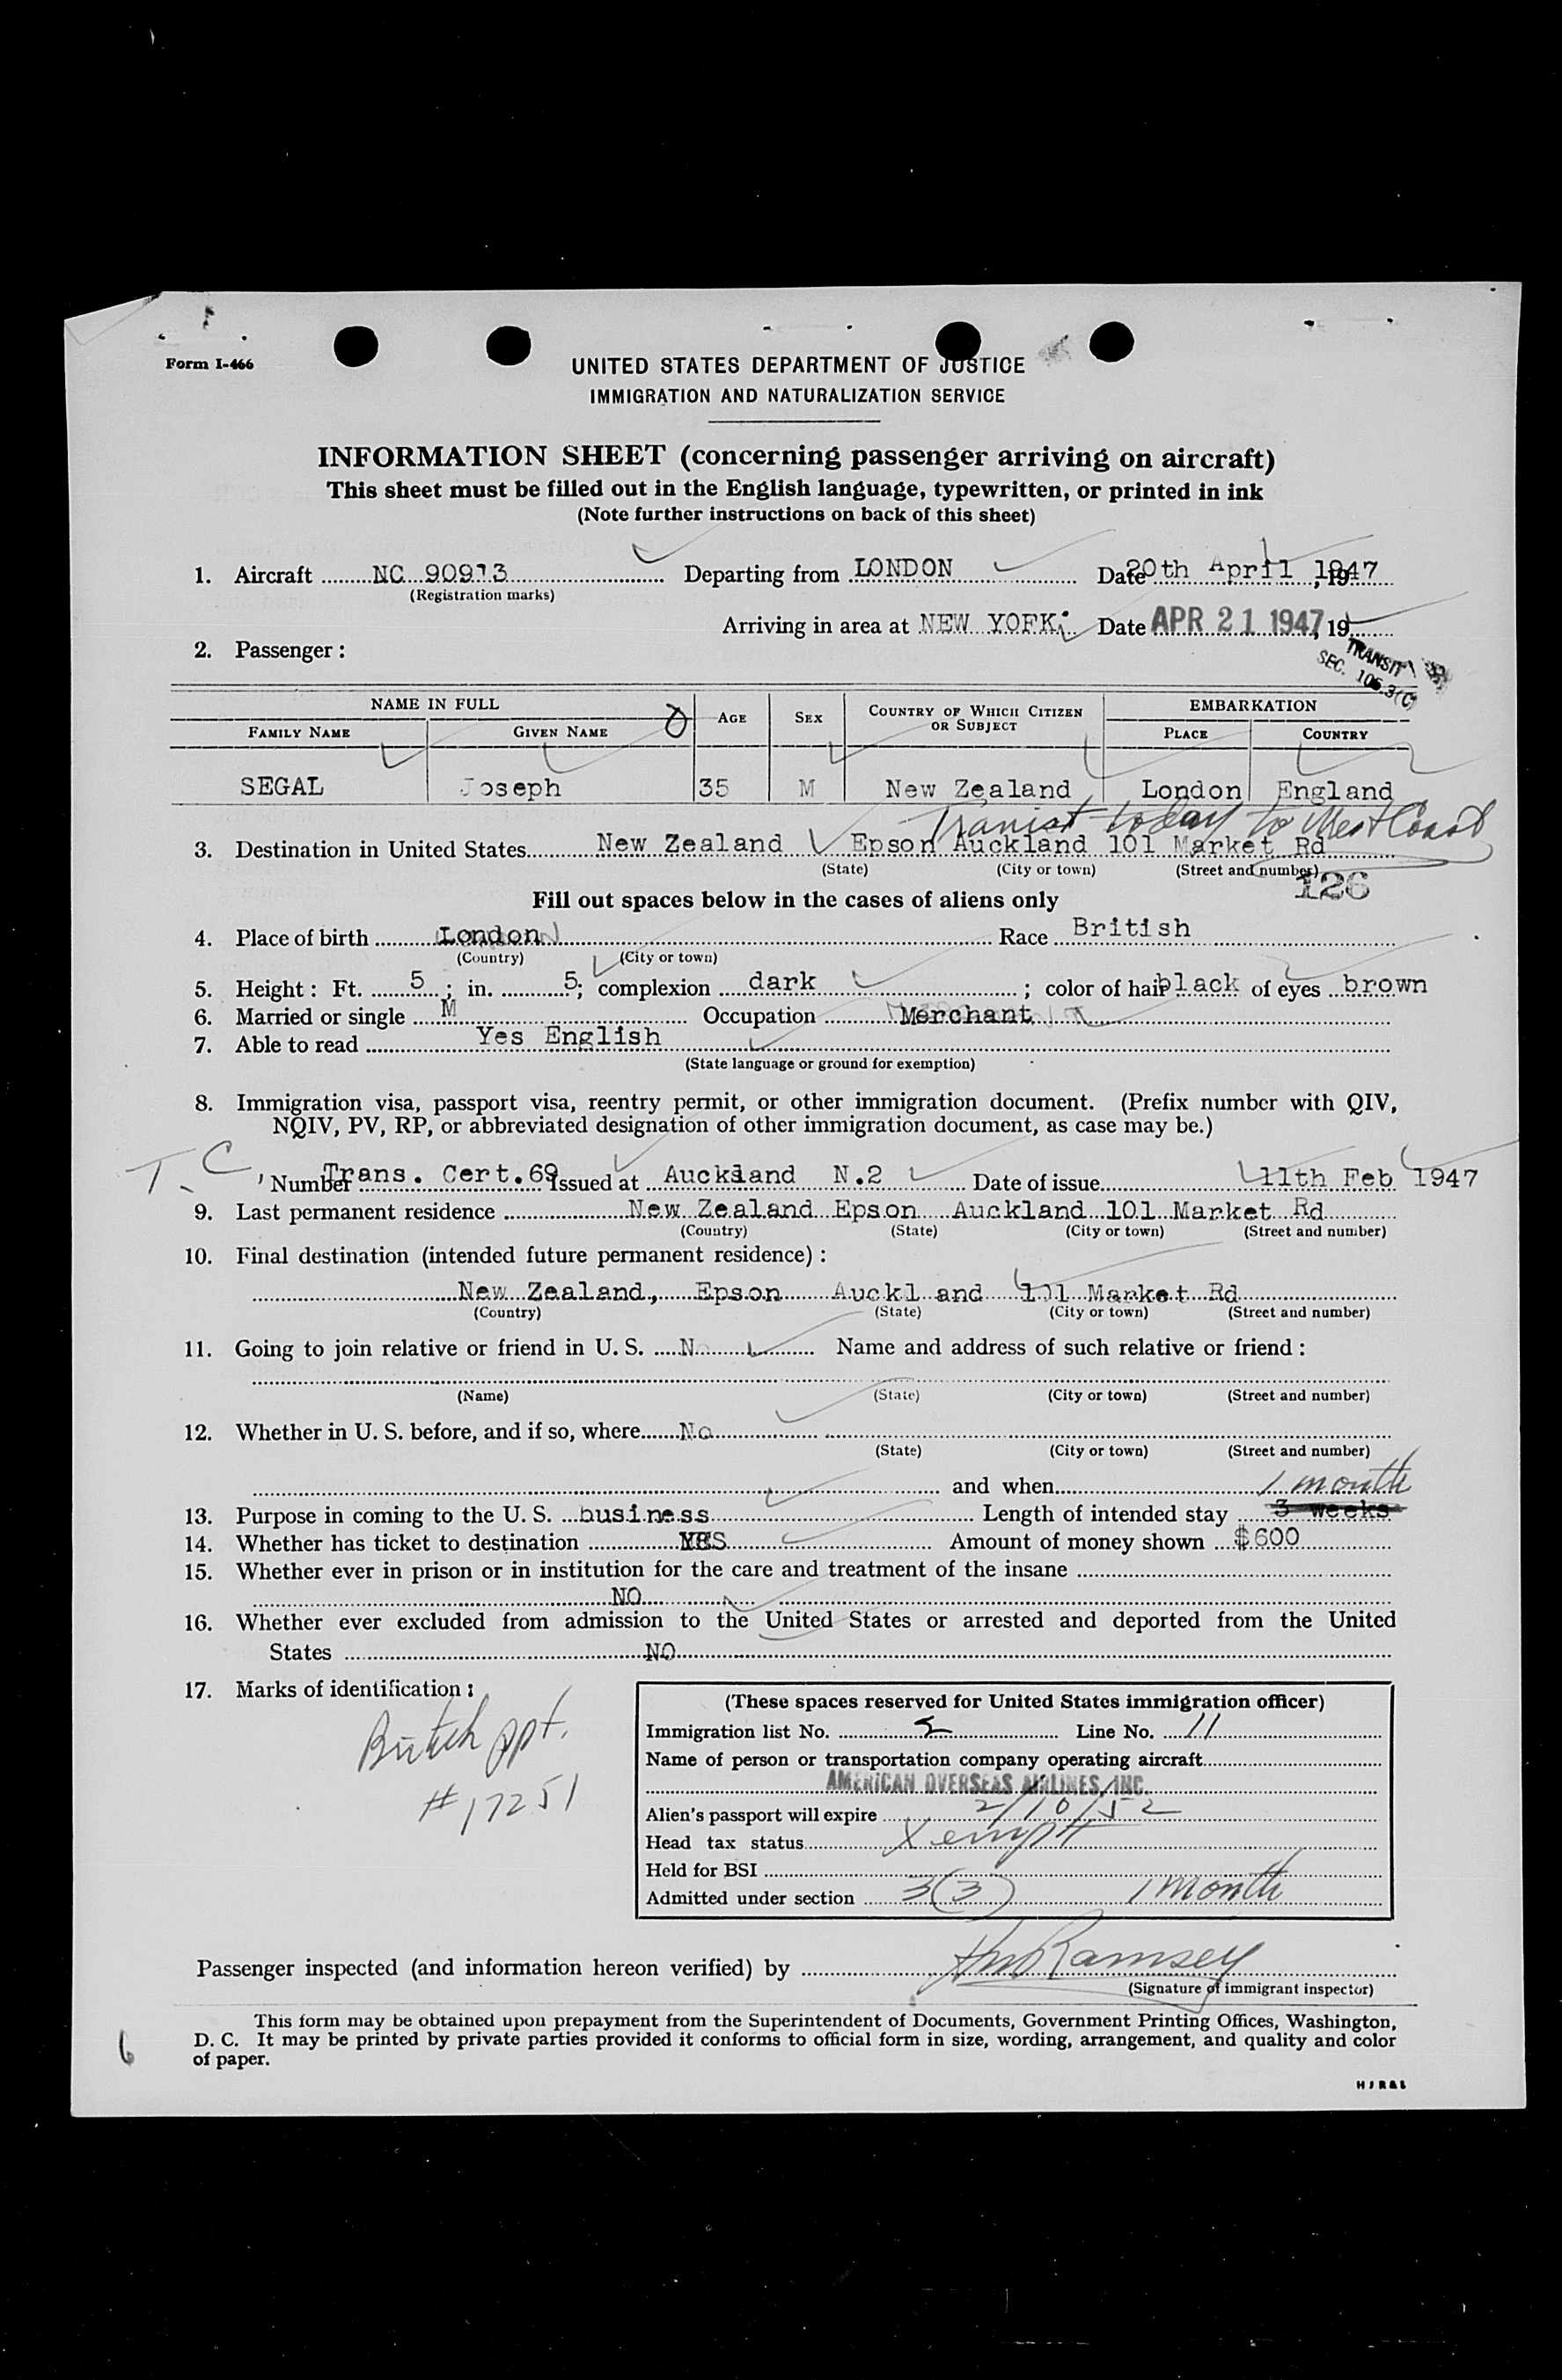 Form I-466
UNITED STATES DEPARTMENT OF JUSTICE
IMMIGRATION AND NATURALIZATION SERVICE
INFORMATION SHEET (concerning passenger arriving on aircraft)
This sheet must be filled out in the English language, typewritten, or printed in ink
(Note further instructions on back of this sheet)
1. Aircraft NC 90913 Departing from LONDON Date 20th April 1947, 19
(Registration marks)
Arriving in area at NEW YORK. Date APR 21 1947, 19
2. Passenger:
TRANSIT
SEC. 106.3(C)
NAME IN FULL AGE SEX COUNTRY OF WHICH CITIZEN OR SUBJECT EMBARKATION
FAMILY NAME GIVEN NAME PLACE COUNTRY
SEGAL Joseph 35 M New Zealand London England
Transit today to West Coast
3. Destination in United States New Zealand Epson Auckland 101 Market Rd
(State) (City or town) (Street and number)
126
Fill out spaces below in the cases of aliens only
4. Place of birth London Race British
(Country) (City or town)
5. Height: Ft. 5; in. 5; complexion dark; color of hair black of eyes brown
6. Married or single M Occupation Merchant
7. Able to read Yes English
(State language or ground for exemption)
8. Immigration visa, passport visa, reentry permit, or other immigration document. (Prefix number with QIV,
NQIV, PV, RP, or abbreviated designation of other immigration document, as case may be.)
T.C
Number Trans. Cert.69 Issued at Auckland N.2 Date of issue 11th Feb 1947
9. Last permanent residence New Zealand Epson Auckland 101 Market Rd
(Country) (State) (City or town) (Street and number)
10. Final destination (intended future permanent residence):
New Zealand, Epson Auckl and 101 Market Rd
(Country) (State) (City or town) (Street and number)
11. Going to join relative or friend in U. S. No Name and address of such relative or friend:
(Name) (State) (City or town) (Street and number)
12. Whether in U. S. before, and if so, where No
(State) (City or town) (Street and number)
and when 1 month
13. Purpose in coming to the U. S. business Length of intended stay 3 weeks
14. Whether has ticket to destination YES Amount of money shown $600
15. Whether ever in prison or in institution for the care and treatment of the insane
NO
16. Whether ever excluded from admission to the United States or arrested and deported from the United
States NO
17. Marks of identification:
British ppt.
#17251
(These spaces reserved for United States immigration officer)
Immigration list No. 5 Line No. 11
Name of person or transportation company operating aircraft
AMERICAN OVERSEAS AIRLINES, INC.
Alien's passport will expire 2/10/52
Head tax status Xempt
Held for BSI
Admitted under section 3(3) 1 month
Passenger inspected (and information hereon verified) by Ramsey
(Signature of immigrant inspector)
This form may be obtained upon prepayment from the Superintendent of Documents, Government Printing Offices, Washington,
D. C. It may be printed by private parties provided it conforms to official form in size, wording, arrangement, and quality and color
of paper.
6
H J R & S